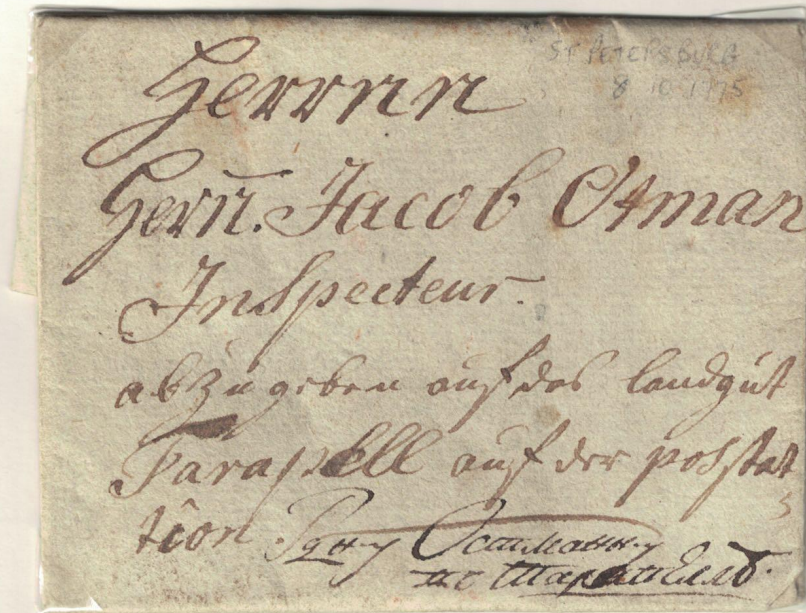 ST PETERSBURG
8 10 1775
Herrnn
Herñ. Jacob Otman
InSpecteur.
abzugeben auf das landgut
Tarapell auf der posstat
tion.
Гдну Остманну